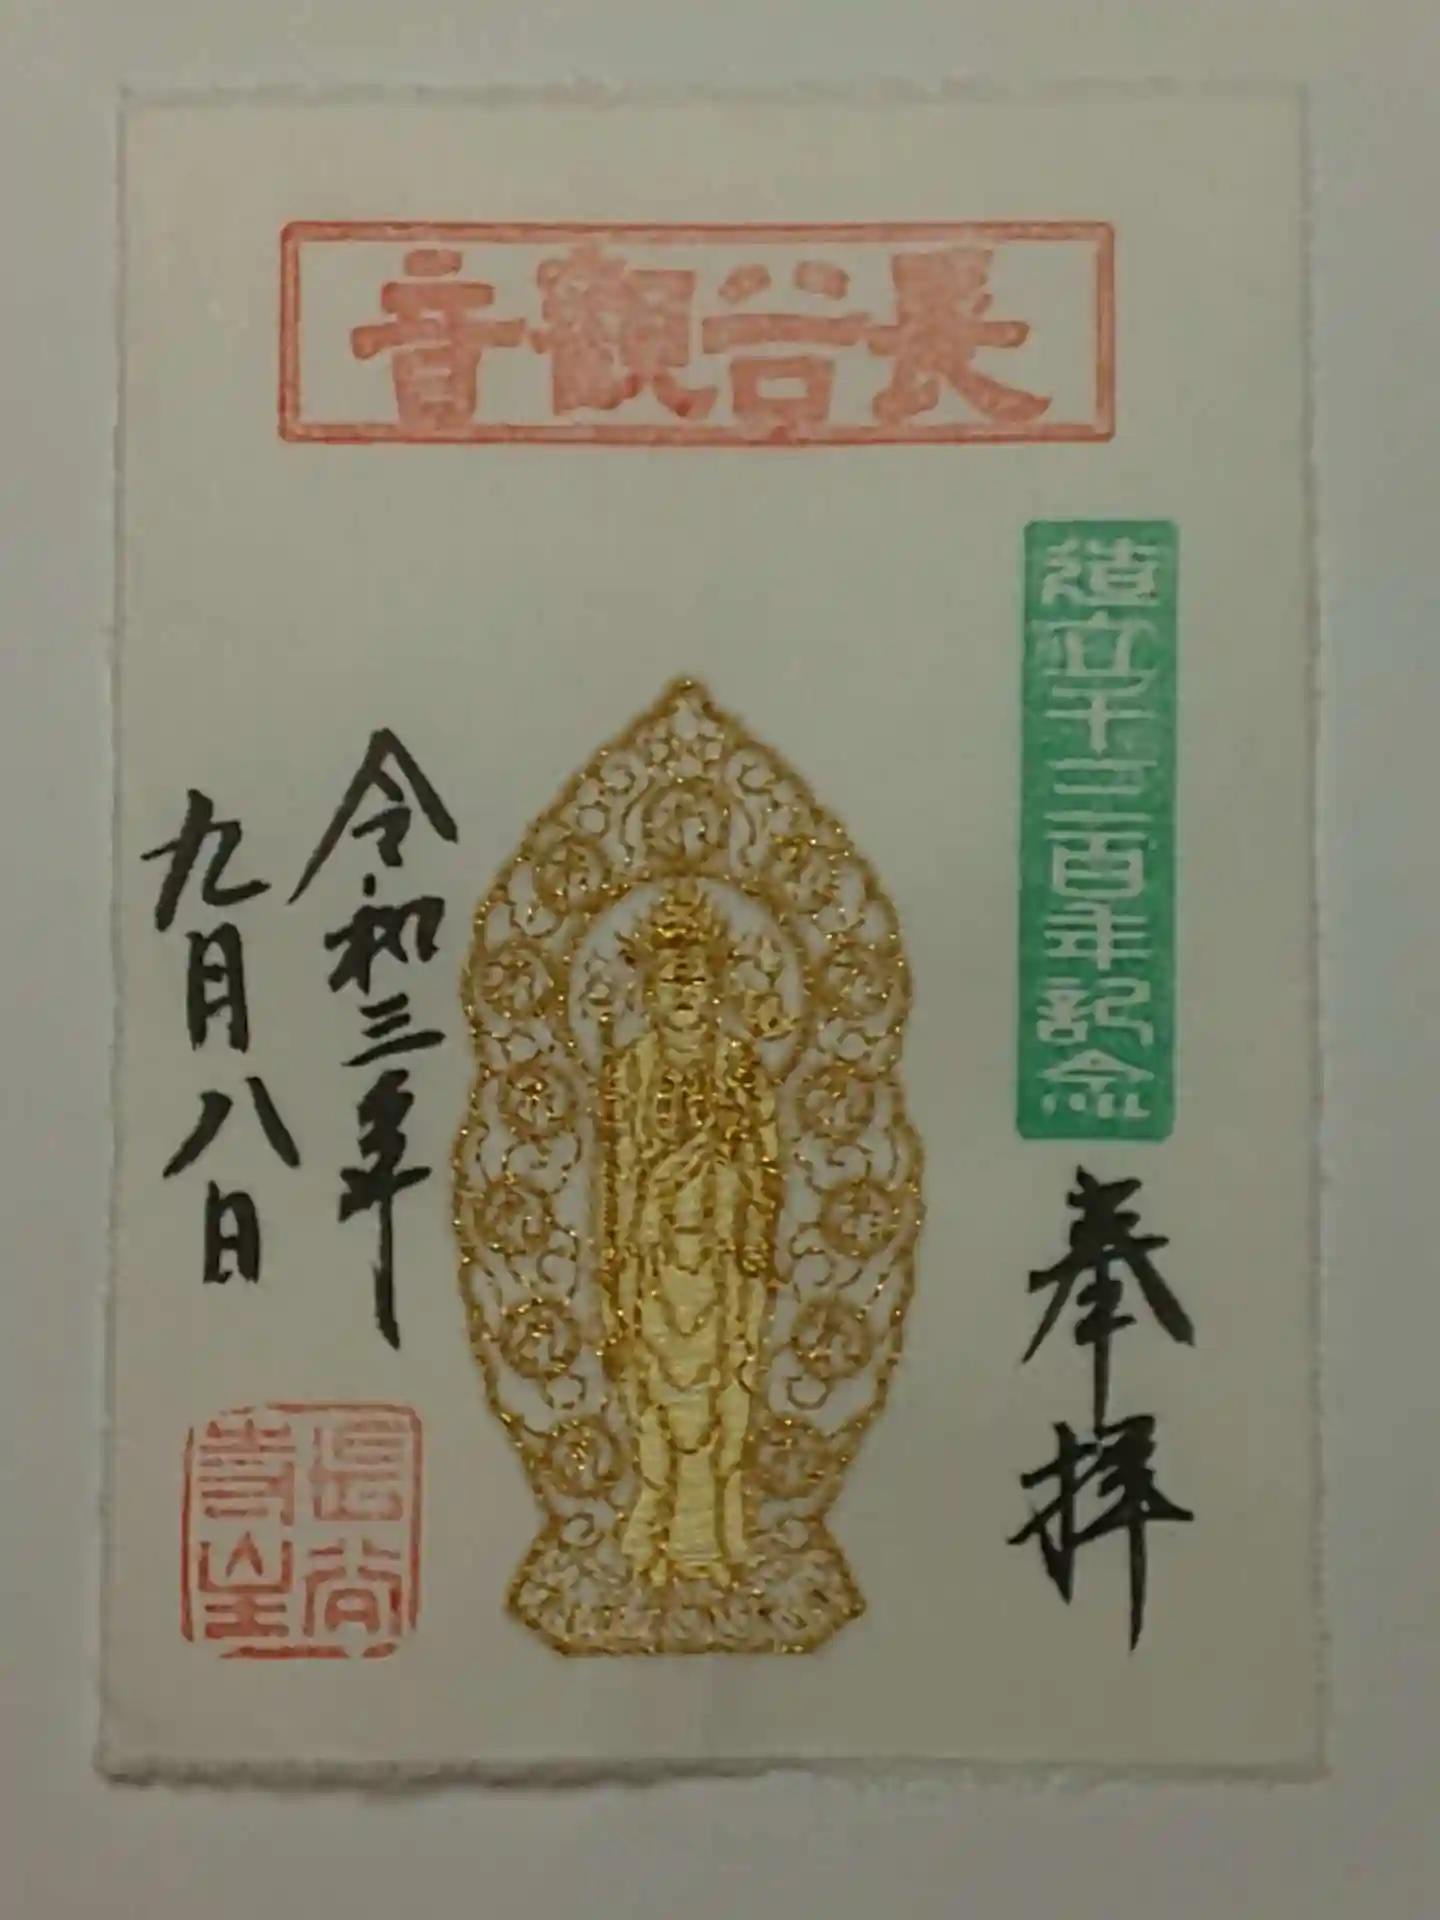 長谷觀音
造立千三百年記念
奉拝
令和三年
九月八日